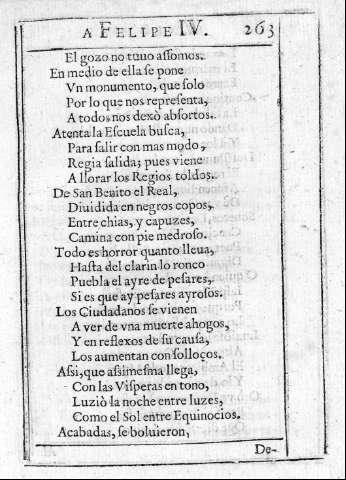 A FELIPE IV. 263
El gozo no tuuo assomos.
En medio de ella se pone
Vn monumento, que solo
Por lo que nos representa,
A todos nos dexò absortos.
Atenta la Escuela busca,
Para salir con mas modo,
Regia salida; pues viene
A llorar los Regios toldos.
De San Benito el Real,
Diuidida en negros copos,
Entre chias, y capuzes,
Camina con pie medroso.
Todo es horror quanto lleua,
Hasta del clarin lo ronco
Puebla el ayre de pesares,
Si es que ay pesares ayrosos.
Los Ciudadanos se vienen
A ver de vna muerte ahogos,
Y en reflexos de su causa,
Los aumentan con solloços.
Assi, que assimesma llega,
Con las Visperas en tono,
Luziò la noche entre luzes,
Como el Sol entre Equinocios.
Acabadas, se boluieron,
De-